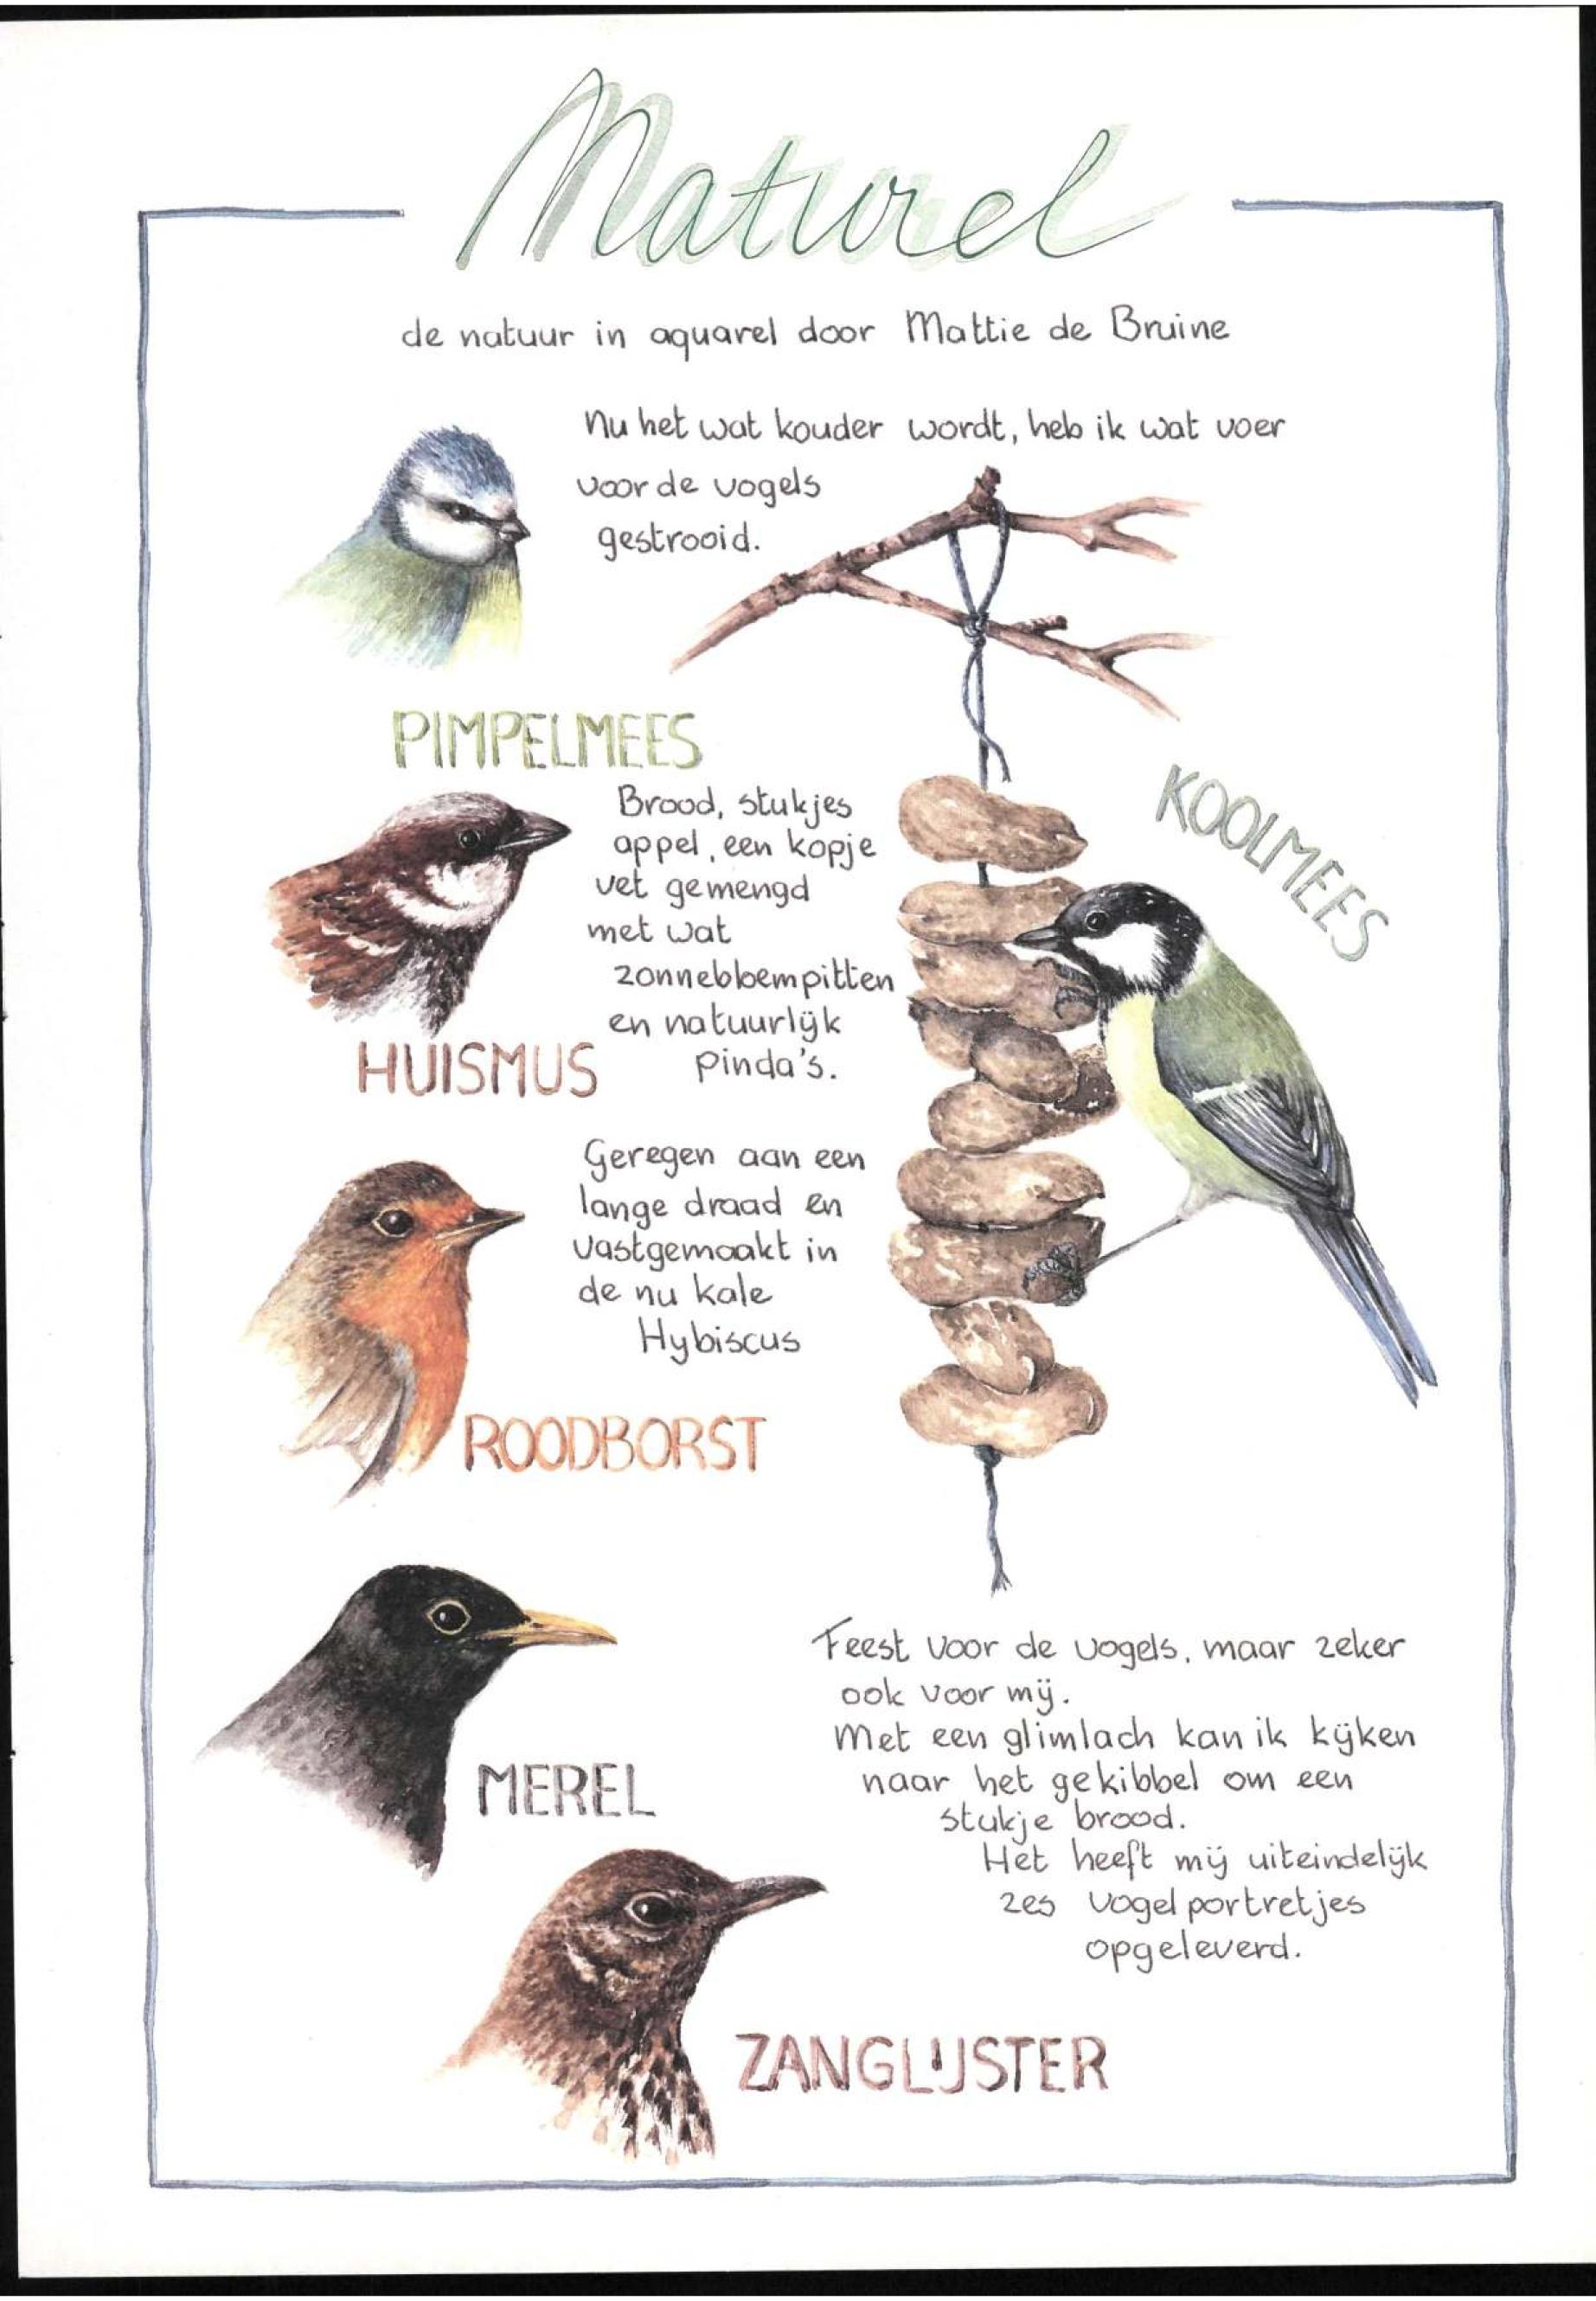 Naturel
de natuur in aquarel door Mattie de Bruine
Nu het wat kouder wordt, heb ik wat voer
voor de vogels
gestrooid.
PIMPELMEES
KOOLMEES
Brood, stukjes
appel, een kopje
vet gemengd
met wat
zonnebloempitten
en natuurlijk
pinda's.
HUISMUS
Geregen aan een
lange draad en
vastgemaakt in
de nu kale
Hybiscus
ROODBORST
MEREL
Feest voor de vogels, maar zeker
ook voor mij.
Met een glimlach kan ik kijken
naar het gekibbel om een
stukje brood.
Het heeft mij uiteindelijk
zes vogelportretjes
opgeleverd.
ZANGLIJSTER